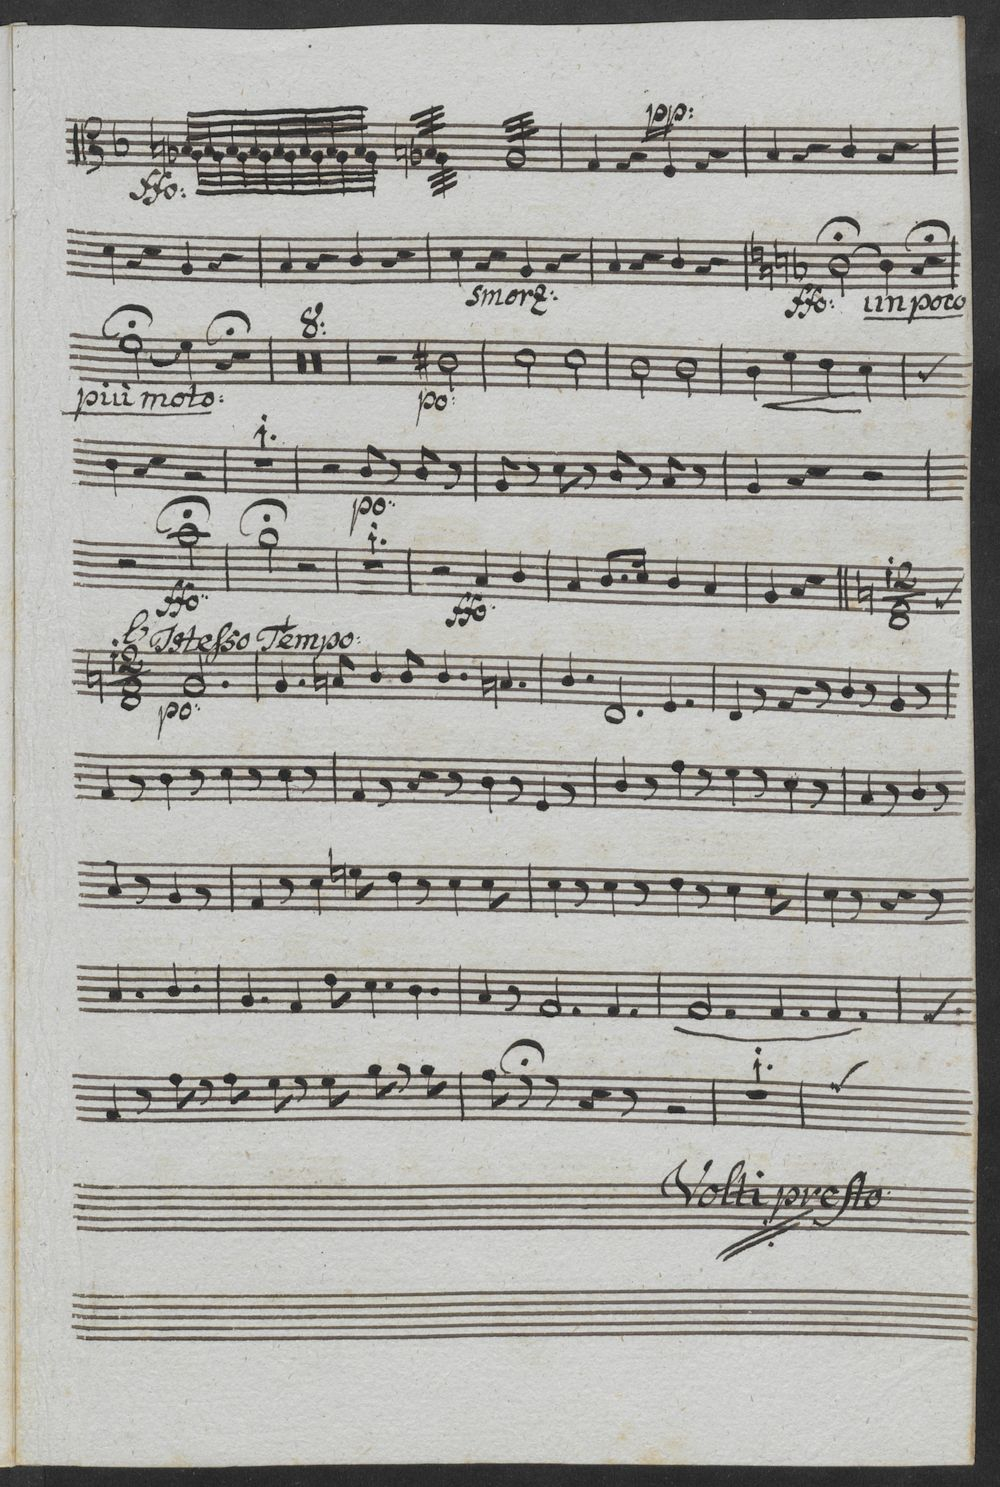 pp:
ffo:
smorz:
ffo: un poco
8:
più moto:
po:
i.
po:
i.
ffo:
ffo:
12
8
l'Istesso Tempo:
12
8
po:
i.
Volti presto